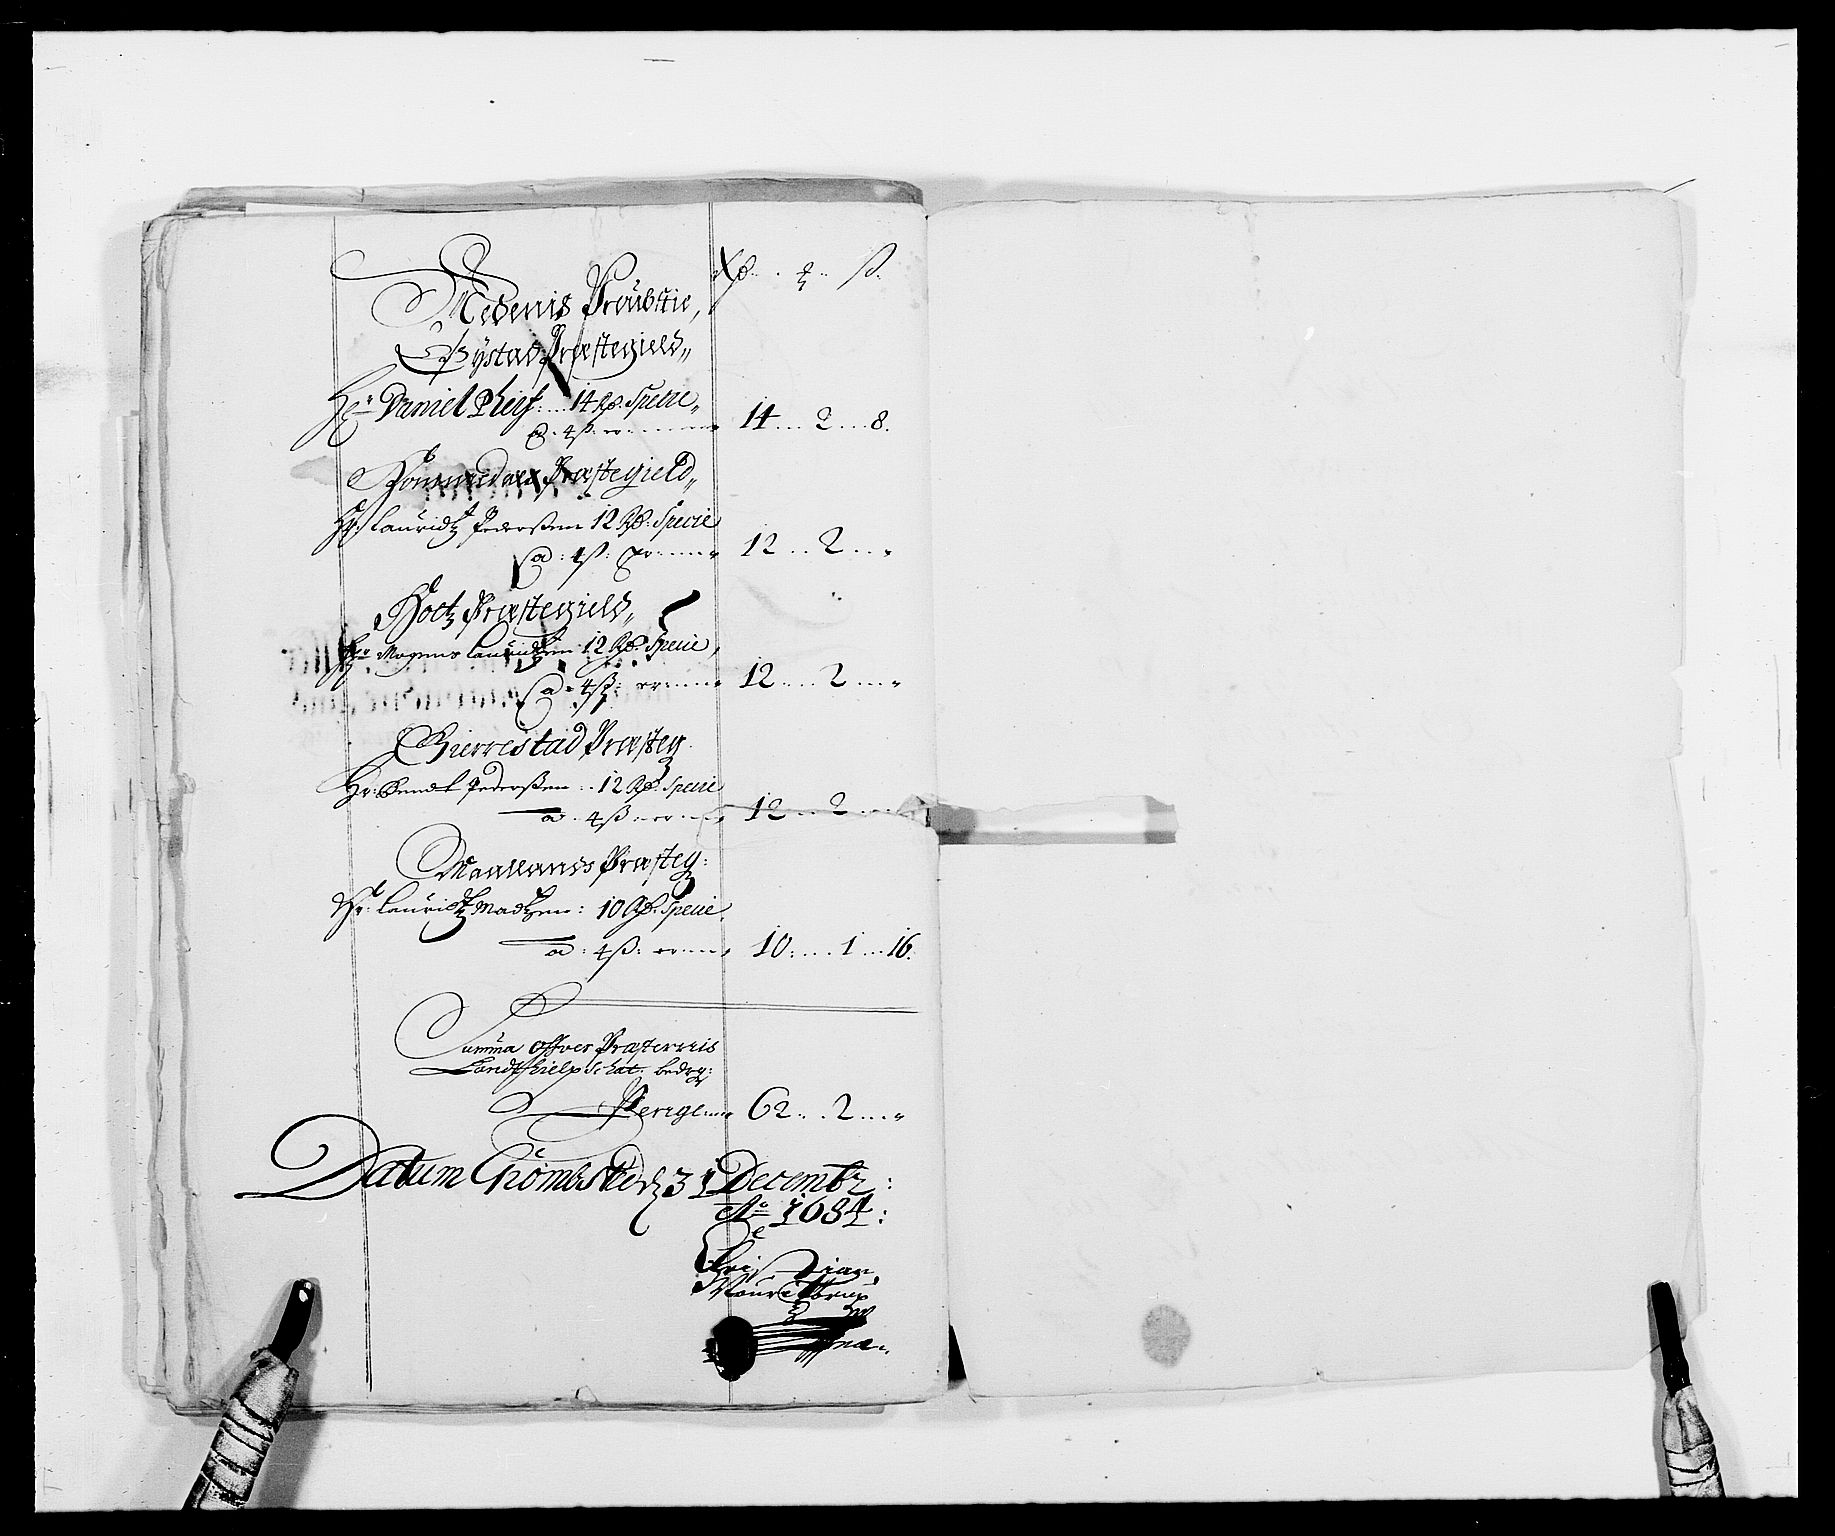 Nedenis Proubstie,
Rdr. ß.
Øystad Præstegield,,
Hr. Daniel Pleys: 14 Rd. Specie,,
a. 4 ß: er 14 .. 2 .. 8.
Præstegield,,
Hr: Lauridtz Pederßen 12 Rd: Specie
a: 4 ß: er 12 .. 2 .. "
Holtz Præstegield,,
Hr. Mogens Lauridtzen 12 Rd. Specie,
a: 4 ß: er 12 .. 2 .. "
Gierrestad Præsteg.
Hr: Bendt Pederßen .. 12 Rd. Specie
a. 4 ß er 12 .. 2 ..
Præsteg:
Hr: Lauridtz Madtzen: 10 Rd. Specie.
a: 4 ß: er 10: .. 1 .. 16.
Summa offver Præsternis
Landthielp Schat bedrg:
Penge 62 .. 2 .. "
Datum Grømbsted 31 Decembr:
Ao 1684:
Christian